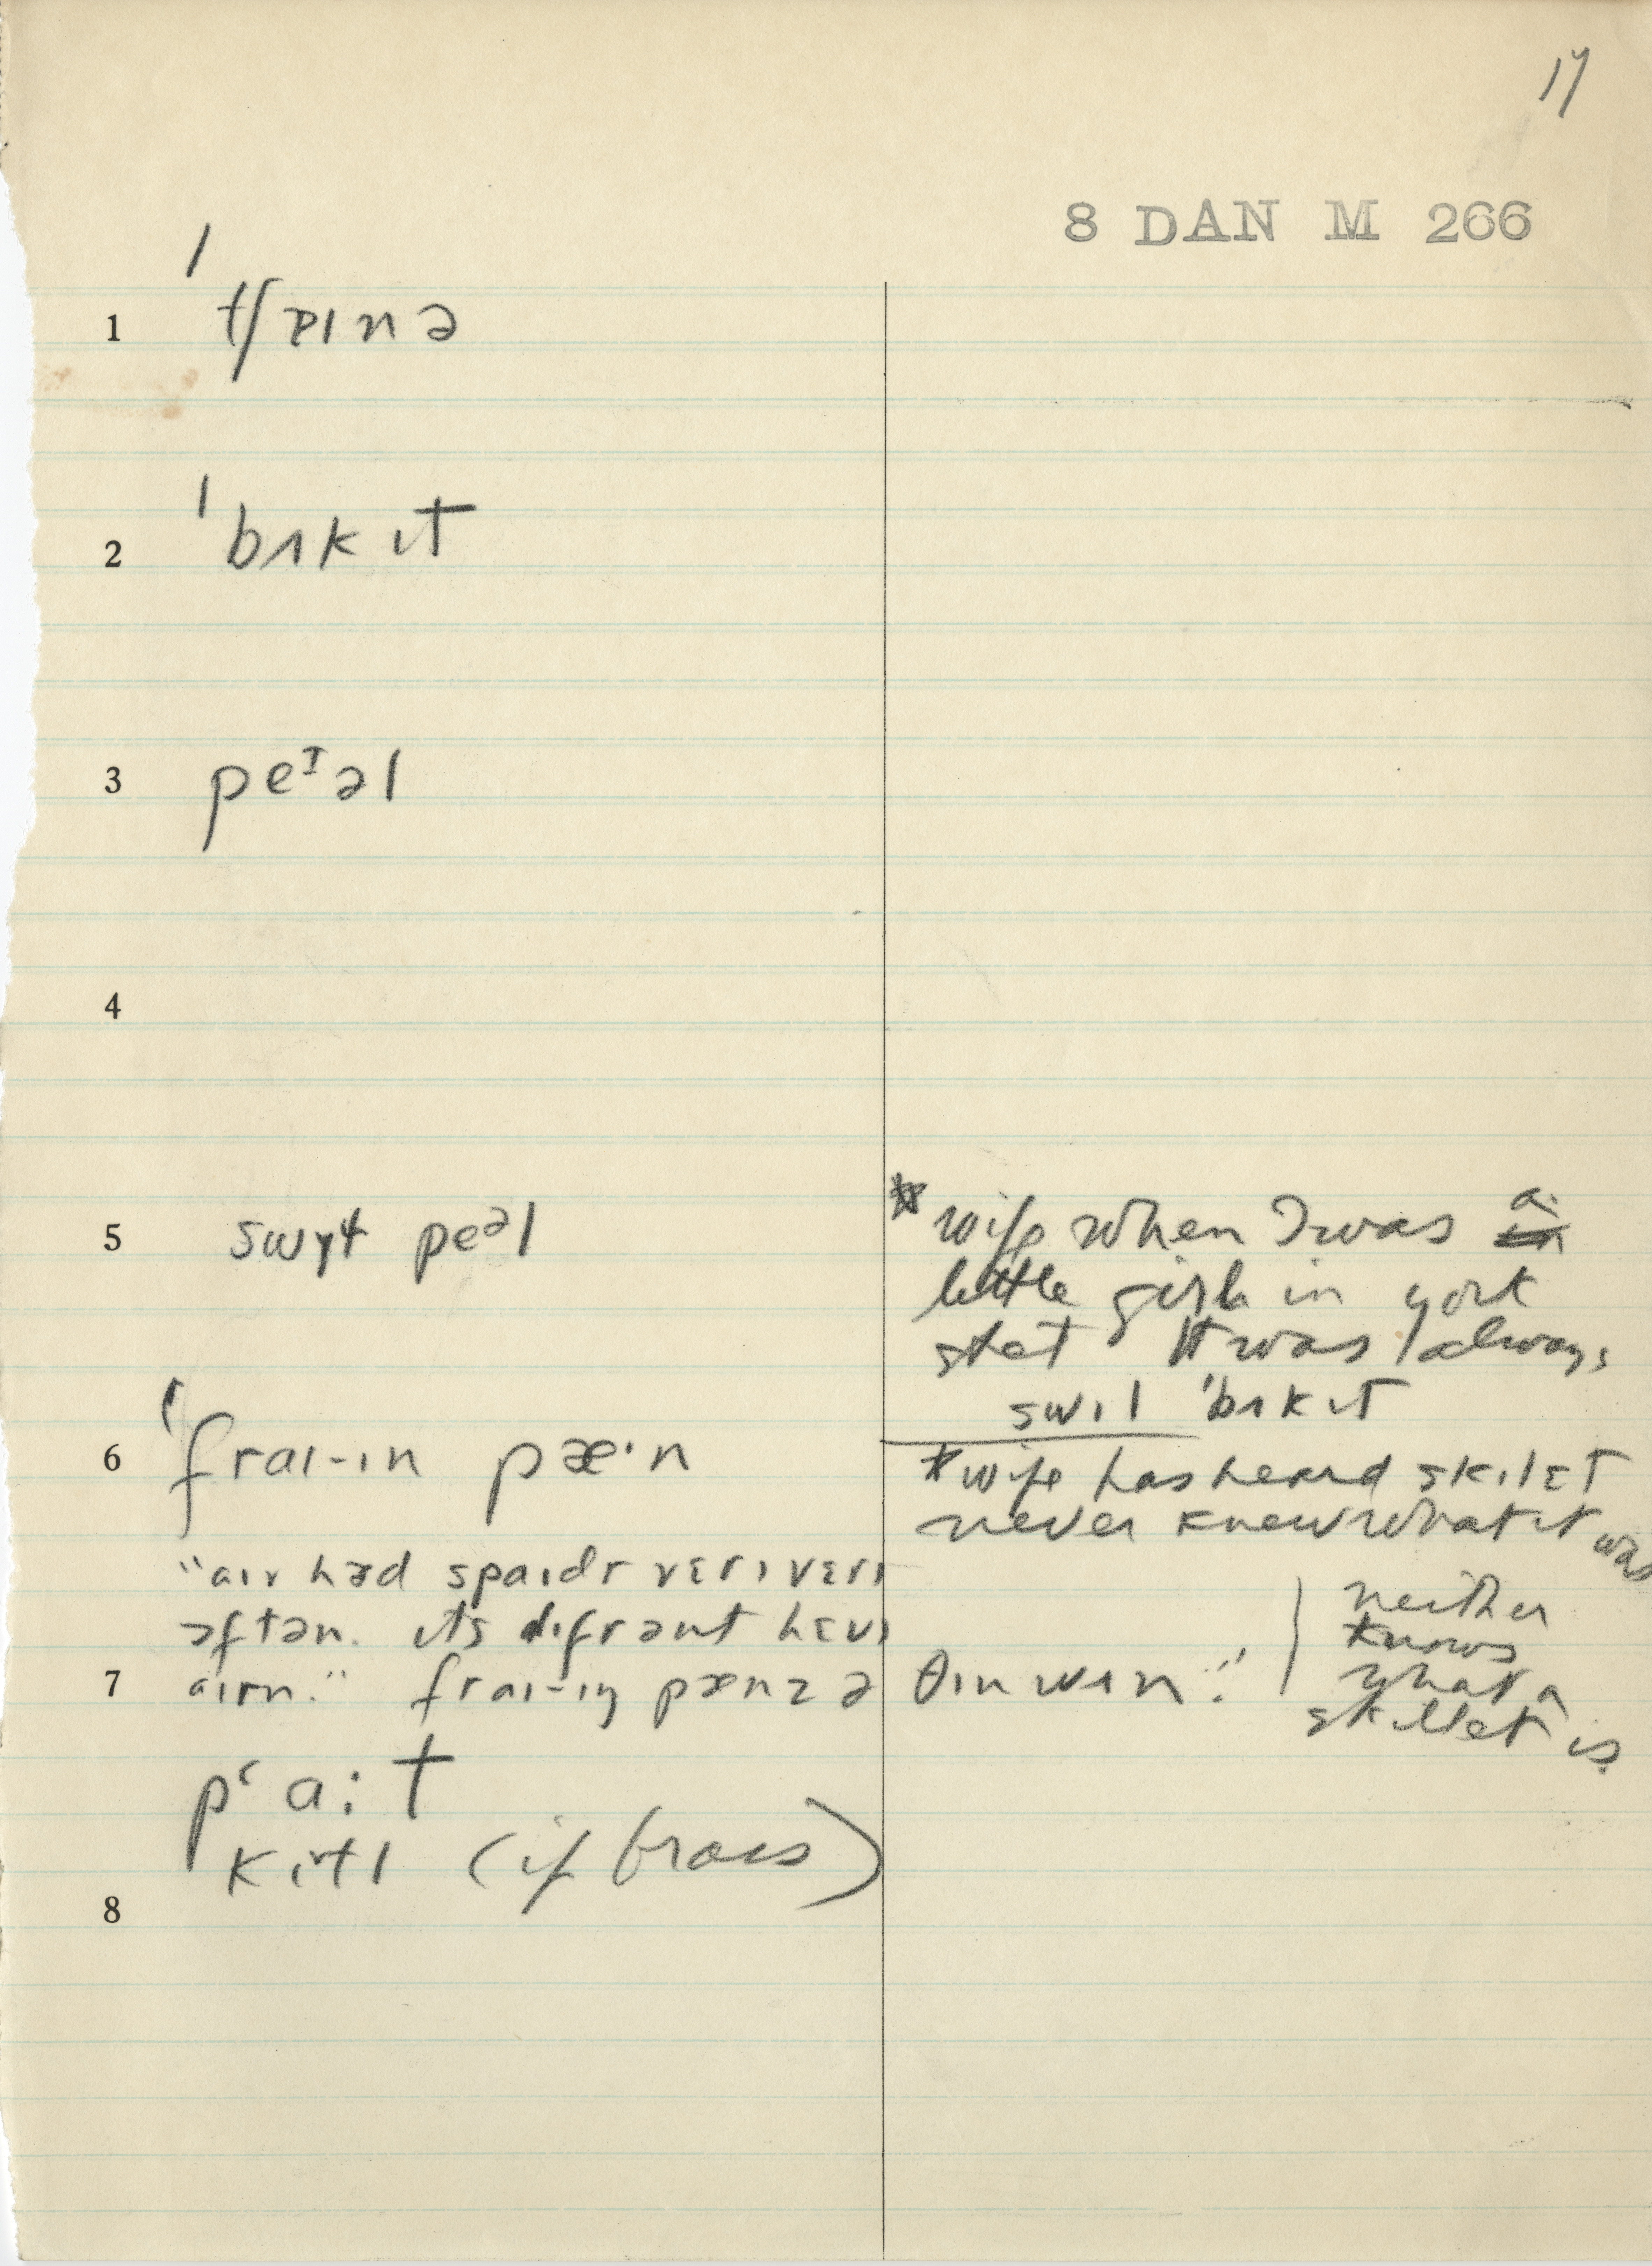 17
8 DAN M 266
1 ˈtʃɐɪnə
2 ˈbʌkɪt
3 peᴵəl
4
5 swɪɫ peᵊl
* wife when I was a
little girl in york
stat It was always
swɪl ˈbʌkɪt
6 ˈfraɪ-ɪn pæ·n
* wife has heard skɪlɛt
never knew what it was
"aɪv hɜd spaɪdr vɛrɪ vɛrɪ
ɔftən. ɪts dɪfrənt hɛvɪ
7 aɪrn." fraɪ-ɪŋ pænz ə θɪn wʌn."
neither
knows
what a
skillet is
pʻɑ:t
kɪtl (if brass)
8